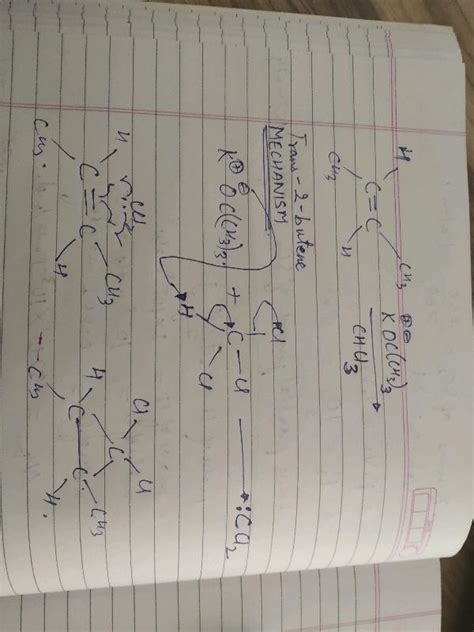 H CH3
C=C
CH3 H
K⊕ ⊖OC(CH3)3
CHCl3
Trans-2-butene
MECHANISM
K⊕ ⊖OC(CH3)3 + Cl
C-Cl
H Cl
:CCl2
H CCl2 CH3
C=C
CH3 H
Cl Cl
C
H CH3
C-C
CH3 H